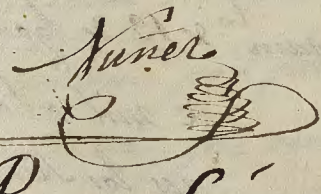 Nuñez